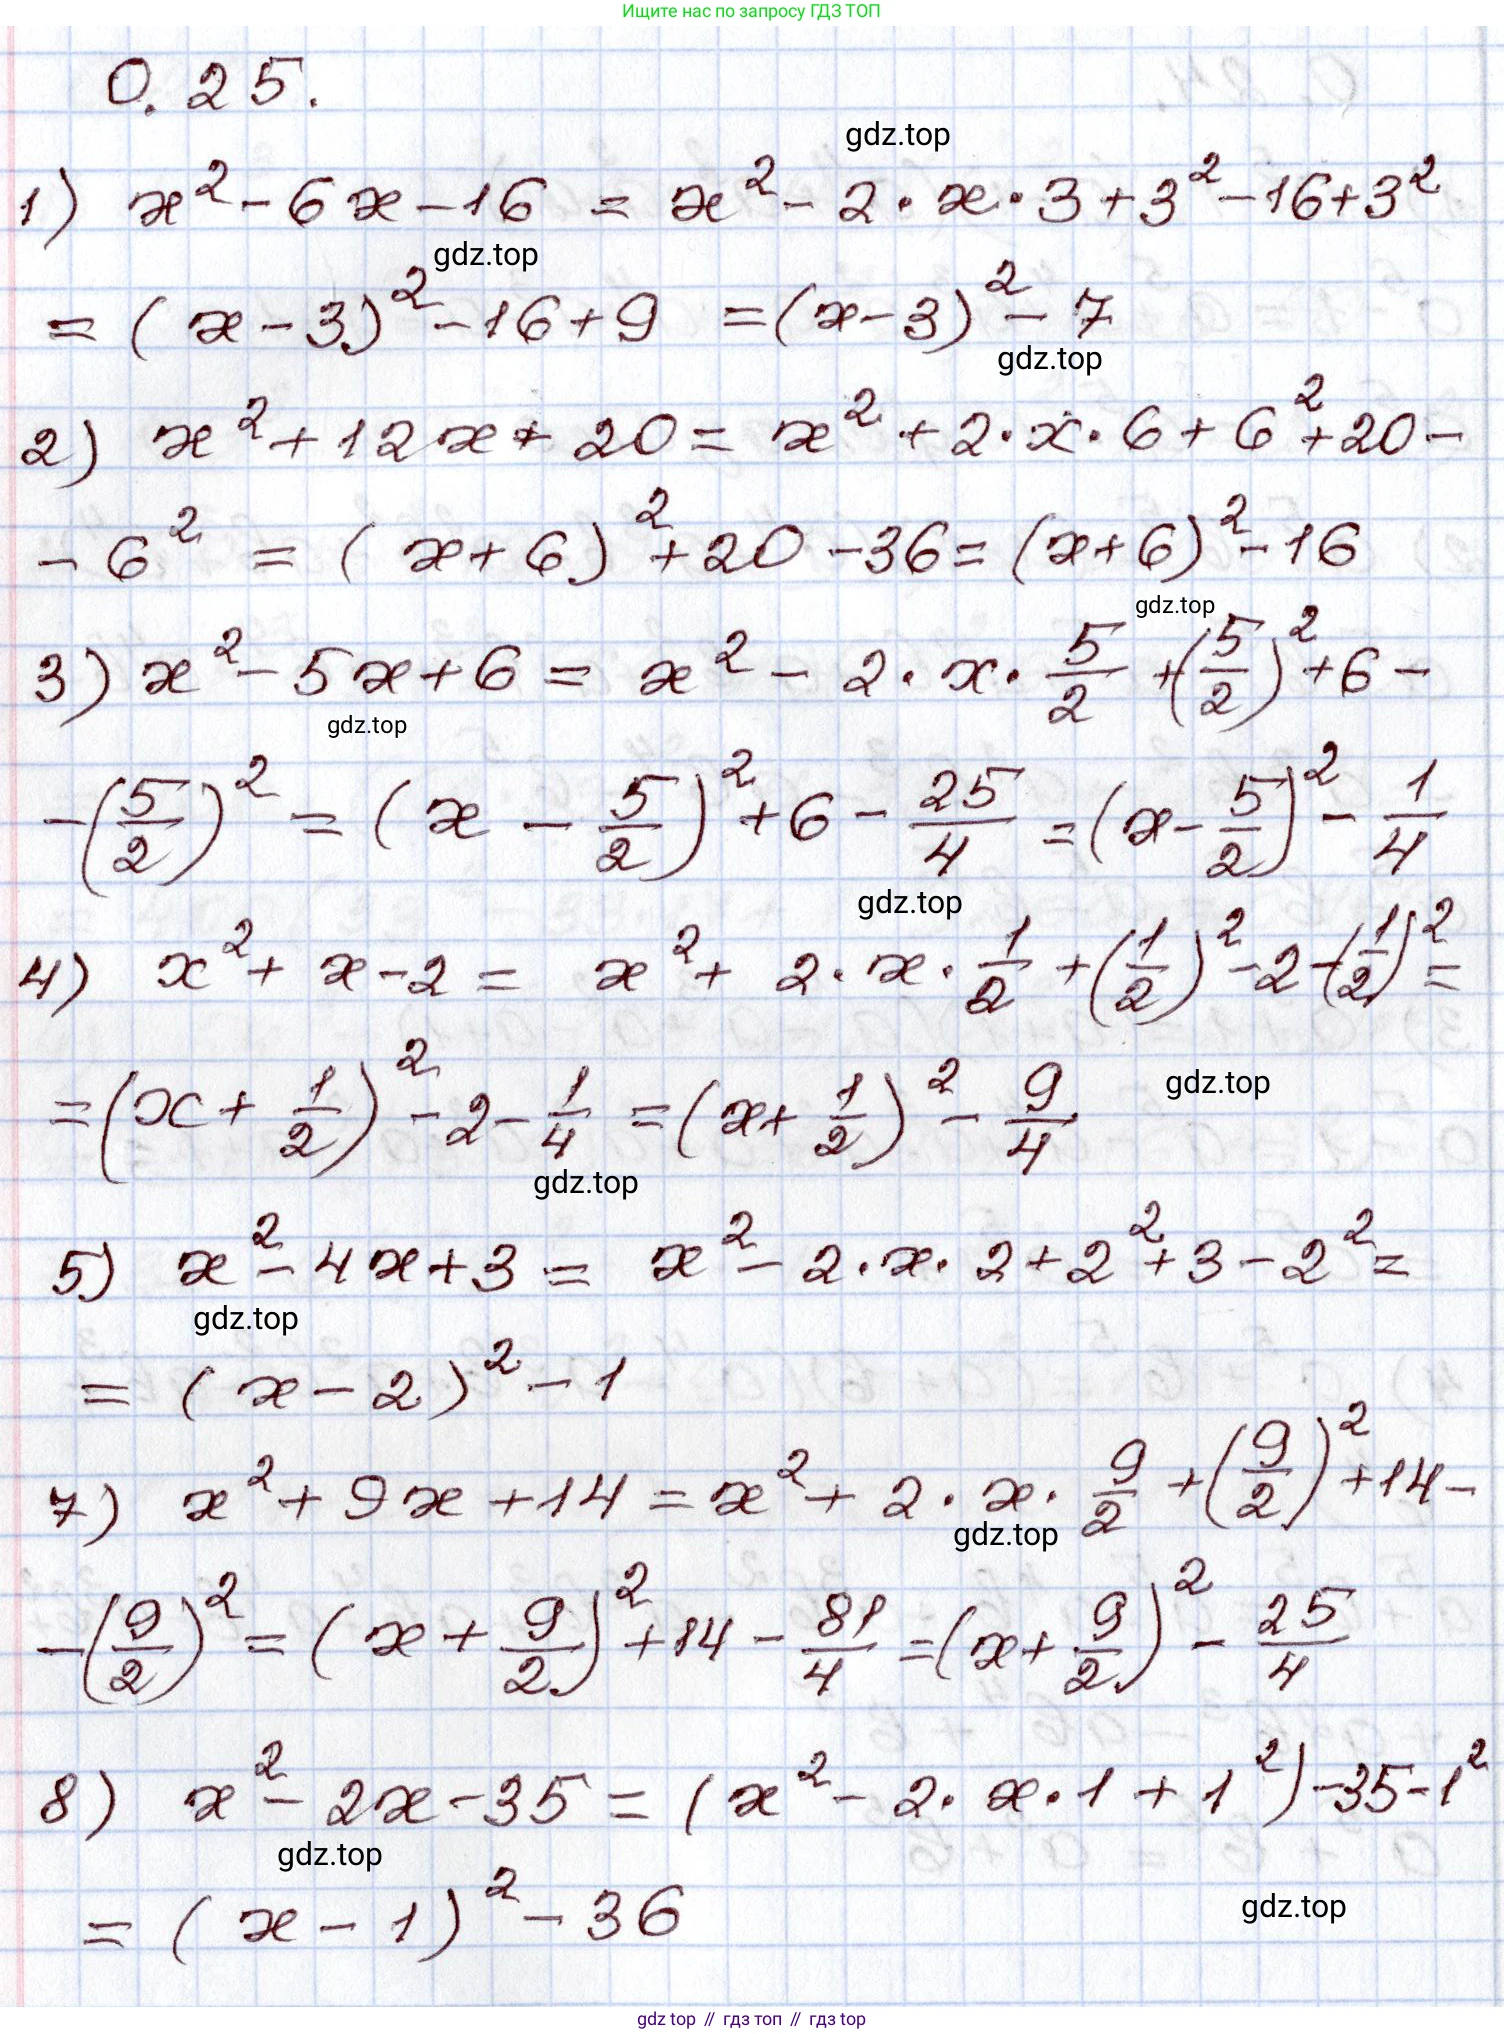 Ищите нас по запросу ГДЗ ТОП
0.25.
gdz.top
1) x² - 6x - 16 = x² - 2·x·3 + 3² - 16 + 3²
gdz.top
= (x - 3)² - 16 + 9 = (x - 3)² - 7
gdz.top
2) x² + 12x + 20 = x² + 2·x·6 + 6² + 20 -
- 6² = (x + 6)² + 20 - 36 = (x + 6)² - 16
gdz.top
3) x² - 5x + 6 = x² - 2·x·5/2 + (5/2)² + 6 -
gdz.top
- (5/2)² = (x - 5/2)² + 6 - 25/4 = (x - 5/2)² - 1/4
gdz.top
4) x² + x - 2 = x² + 2·x·1/2 + (1/2)² - 2 - (1/2)² =
= (x + 1/2)² - 2 - 1/4 = (x + 1/2)² - 9/4
gdz.top
gdz.top
5) x² - 4x + 3 = x² - 2·x·2 + 2² + 3 - 2² =
gdz.top
= (x - 2)² - 1
7) x² + 9x + 14 = x² + 2·x·9/2 + (9/2)² + 14 -
gdz.top
- (9/2)² = (x + 9/2)² + 14 - 81/4 = (x + 9/2)² - 25/4
8) x² - 2x - 35 = (x² - 2·x·1 + 1²) - 35 - 1²
gdz.top
= (x - 1)² - 36
gdz.top
gdz top // гдз топ // гдз top